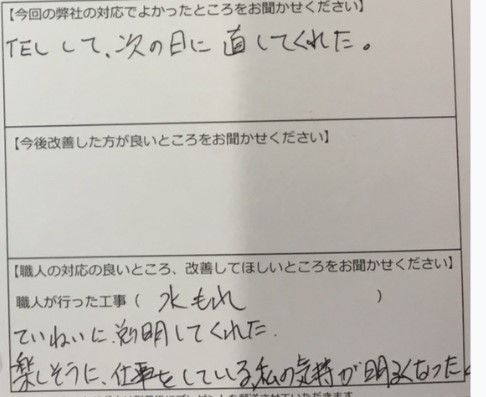 【今回の弊社の対応でよかったところをお聞かせください】
TELして、次の日に直してくれた。
【今後改善した方が良いところをお聞かせください】
【職人の対応の良いところ、改善してほしいところをお聞かせください】
職人が行った工事（ 水もれ ）
ていねいに、説明してくれた.
楽しそうに、仕事をしている、私の気持が明るくなった